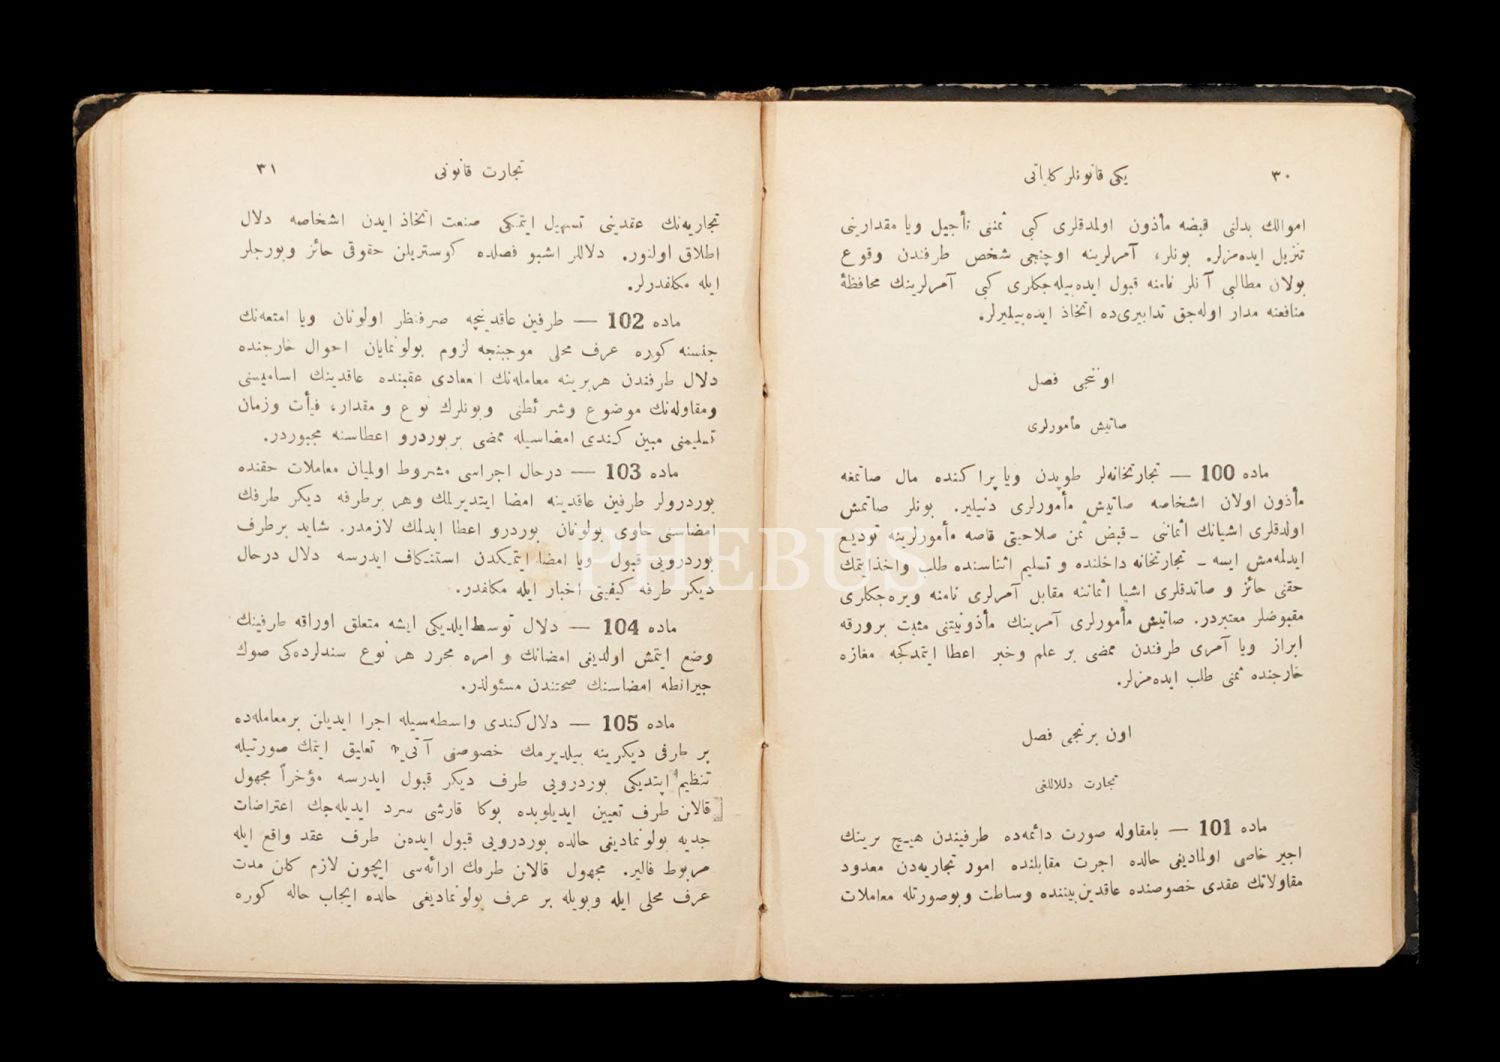 ٣٠
یکی قانونلر کلیاتی
اموالك بدلنی قبضه مأذون اولمدقلری کبی ثمنی تأجیل ویا مقدارینی
تنزیل ایده‌مزلر. بونلر، آمرلرینه اوچنجی شخص طرفندن وقوع
بولان مطالبی آنلر نامنه قبول ایده‌بیله‌جکلری کبی آمرلرینك محافظهٔ
منافعنه مدار اوله‌جق تدابیری‌ده اتخاذ ایده‌بیلیرلر.
اوننجی فصل
صاتیش مأمورلری
ماده 100 — تجارتخانه‌لر طوپدن ویا پراکنده مال صاتمغه
مأذون اولان اشخاصه صاتیش مأمورلری دنیلیر. بونلر صاتمش
اولدقلری اشیانك أثماننی ـ قبض ثمن صلاحیتی قاصه مأمورلرینه تودیع
ایدلمه‌مش ایسه ـ تجارتخانه داخلنده و تسلیم اثناسنده طلب واخذایتمك
حقنی حائز و صاتدقلری اشیا أثماننه مقابل آمرلری نامنه ویره‌جکلری
مقبوضلر معتبردر. صاتیش مأمورلری آمرینك مأذونیتنی مثبت برورقه
ابراز ویا آمری طرفندن ممضی بر علم وخبر اعطا ایتمدکجه مغازه
خارجنده ثمنی طلب ایده‌مزلر.
اون برنجی فصل
تجارت دلاللغی
ماده 101 — بامقاوله صورت دائمه‌ده طرفیندن هیچ برینك
اجیر خاصی اولمادیغی حالده اجرت مقابلنده امور تجاریه‌دن معدود
مقاولاتك عقدی خصوصنده عاقدین‌بیننده وساطت وبوصورتله معاملات
تجارت قانونی
٣١
تجاریه‌نك عقدینی تسهیل ایتمکی صنعت اتخاذ ایدن اشخاصه دلال
اطلاق اولنور. دلاللر اشبو فصلده کوستریلن حقوقی حائز وبورجلر
ایله مکلفدرلر.
ماده 102 — طرفین عاقدینجه صرفنظر اولونان ویا امتعه‌نك
جنسنه کوره عرف محلی موجبنجه لزوم بولونمایان احوال خارجنده
دلال طرفندن هربرینه معامله‌نك انعقادی عقبنده عاقدینك اسامیسنی
ومقاوله‌نك موضوع وشرائطنی وبونلرك نوع و مقدار، فیأت وزمان
تسلیمنی مبین کندی امضاسیله ممضی بربوردرو اعطاسنه مجبوردر.
ماده 103 — درحال اجراسی مشروط اولمیان معاملات حقنده
بوردرولر طرفین عاقدینه امضا ایتدیرلمك وهر برطرفه دیکر طرفك
امضاسنی حاوی بولونان بوردرو اعطا ایدلمك لازمدر. شاید برطرف
بوردرویی قبول ویا امضا ایتمکدن استنکاف ایدرسه دلال درحال
دیکر طرفه کیفیتی اخبار ایله مکلفدر.
ماده 104 — دلال توسط ایلدیکی ایشه متعلق اوراقه طرفینك
وضع ایتمش اولدیغی امضانك و امره محرر هر نوع سندلرده‌کی صوك
جیرانطه امضاسنك صحتندن مسئولدر.
ماده 105 — دلال کندی واسطه‌سیله اجرا ایدیلن برمعامله‌ده
بر طرفی دیکرینه بیلدیرمك خصوصنی آتی‌یه تعلیق ایتمك صورتیله
تنظیم ایتدیکی بوردرویی طرف دیکر قبول ایدرسه مؤخراً مجهول
قالان طرف تعیین ایدیلوبده بوکا قارشی سرد ایدیله‌جك اعتراضات
جدیه بولونمادیغی حالده بوردرویی قبول ایدن طرف عقد واقع ایله
مربوط قالیر. مجهول قالان طرفك ارائه‌سی ایچون لازم کلن مدت
عرف محلی ایله وبویله بر عرف بولونمادیغی حالده ایجاب حاله کوره
PHEBUS